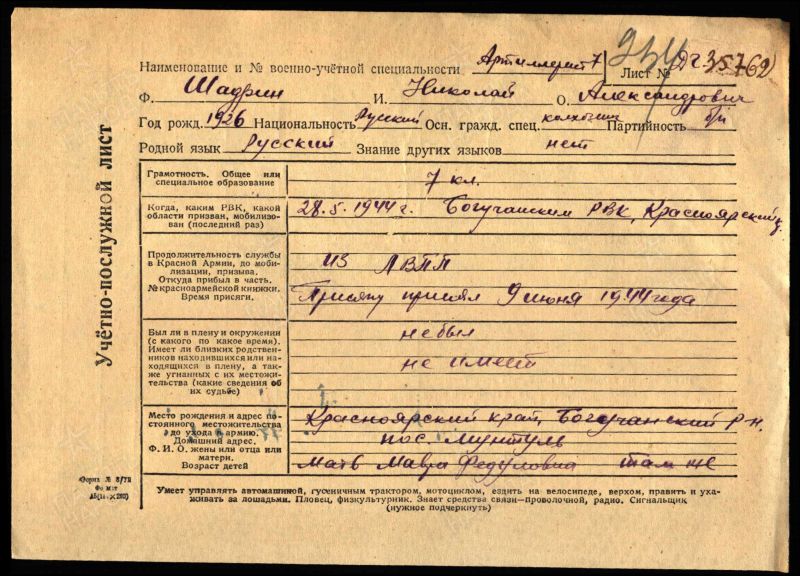 Учётно-послужной лист
Наименование и № военно-учётной специальности Артиллерист 7 Лист №
Ф. Шадрин И. Николай О. Александрович
Год рожд. 1926 Национальность Русский Осн. гражд. спец. колхозник Партийность б/п
Родной язык Русский Знание других языков нет
Грамотность. Общее или специальное образование
7 кл.
Когда, каким РВК, какой
области призван, мобилизо-
ван (последний раз)
28.5.1944 г. Богучанским РВК, Красноярский к.
Продолжительность службы
в Красной Армии, до моби-
лизации, призыва.
Откуда прибыл в часть.
№ красноармейской книжки.
Время присяги.
из ЛВПП
Присягу принял 9 июня 1944 года
Был ли в плену и окружении
(с какого по какое время).
Имеет ли близких родствен-
ников находившихся или на-
ходящихся в плену, а так-
же угнанных с их местожи-
тельства (какие сведения об
их судьбе)
не был
не имеет
Место рождения и адрес по-
стоянного местожительства
до ухода в армию.
Домашний адрес.
Ф. И. О. жены или отца или
матери.
Возраст детей
Красноярский край, Богучанский р-н.
пос. Мунтуль
Мать Мавра Федуловна там же
Форма № 8/УП
Умеет управлять автомашиной, гусеничным трактором, мотоциклом, ездить на велосипеде, верхом, править и уха-
живать за лошадьми. Пловец, физкультурник. Знает средства связи—проволочной, радио. Сигнальщик
(нужное подчеркнуть)